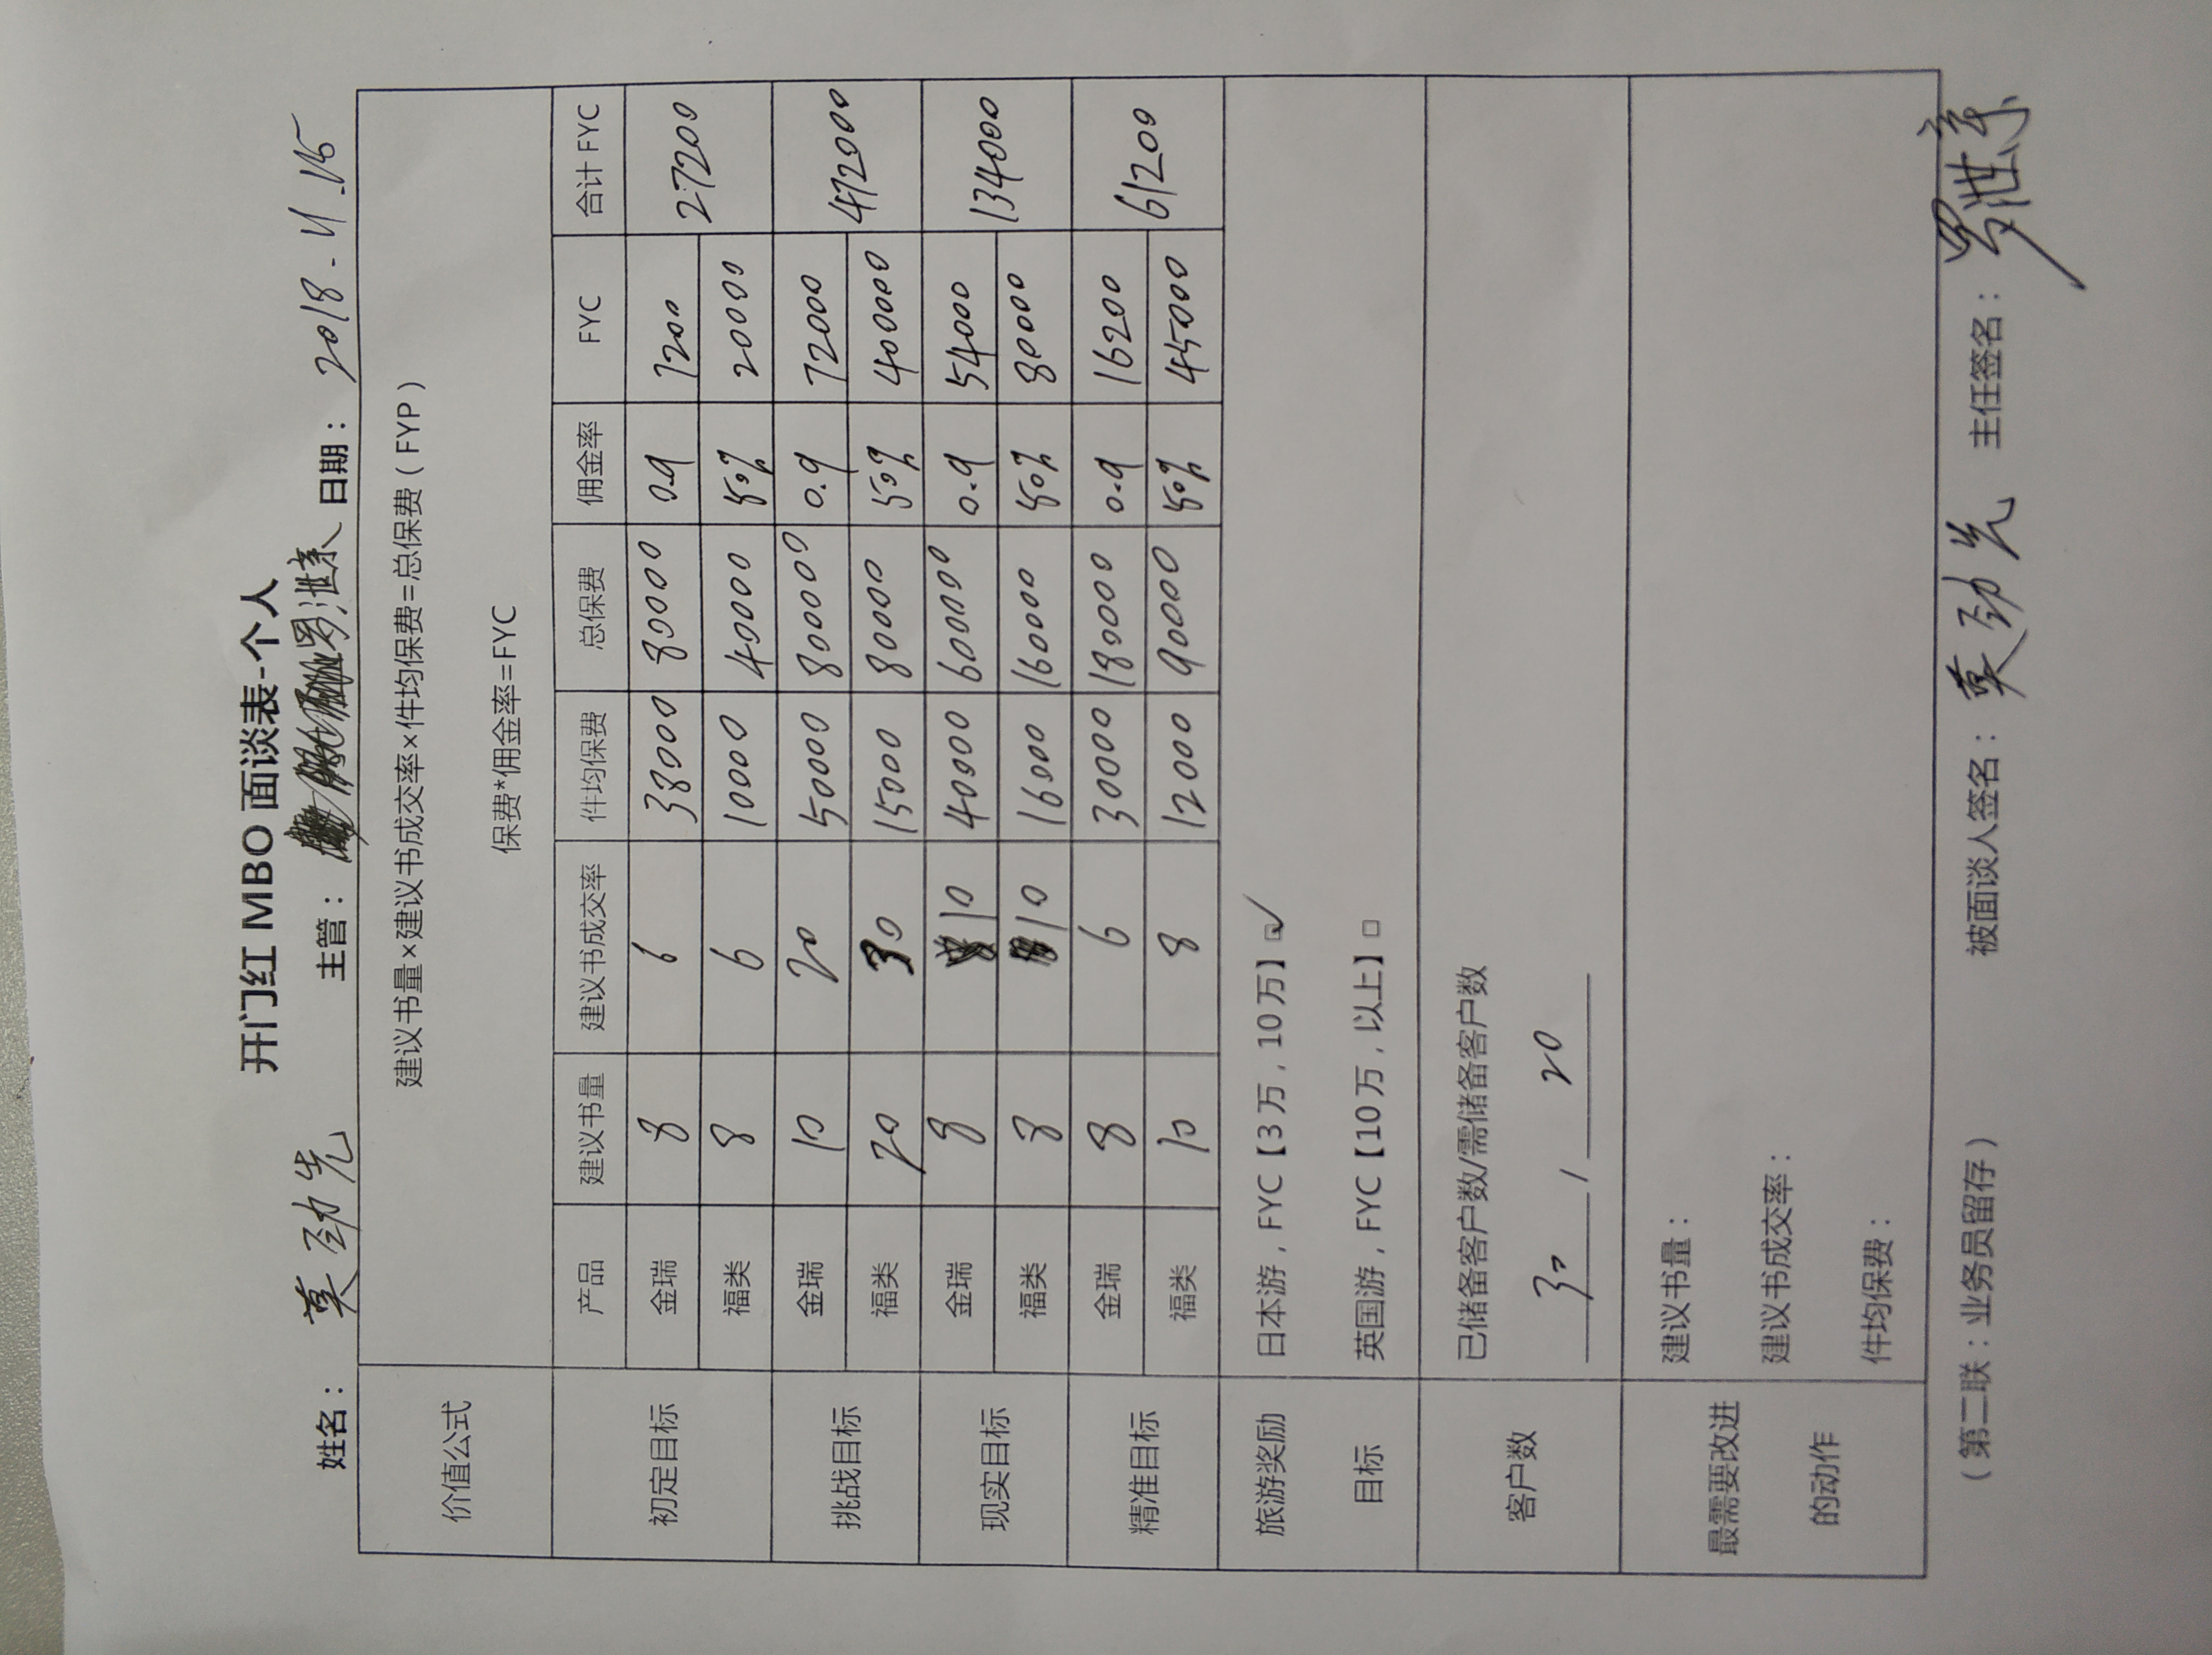 开门红 MBO 面谈表-个人
姓名： 莫劲先 主管： 日期： 2018-11.15
价值公式 建议书量×建议书成交率×件均保费=总保费（FYP）
保费*佣金率=FYC
产品 建议书量 建议书成交率 件均保费 总保费 佣金率 FYC 合计 FYC
初定目标 金瑞 8 6 38000 80000 0.9 7200 27200
福类 8 6 10000 40000 50% 20000
挑战目标 金瑞 10 20 50000 800000 0.9 72000 472000
福类 20 30 15000 80000 50% 400000
现实目标 金瑞 8 10 40000 600000 0.9 54000 134000
福类 8 10 16000 160000 50% 80000
精准目标 金瑞 8 6 30000 180000 0.9 16200 61200
福类 10 8 12000 90000 50% 45000
旅游奖励 日本游，FYC【3万，10万】☑
目标 英国游，FYC【10万，以上】□
客户数 已储备客户数/需储备客户数
30 , 20
最需要改进 建议书量：
建议书成交率：
的动作 件均保费：
（第二联：业务员留存） 被面谈人签名： 莫劲先 主任签名：